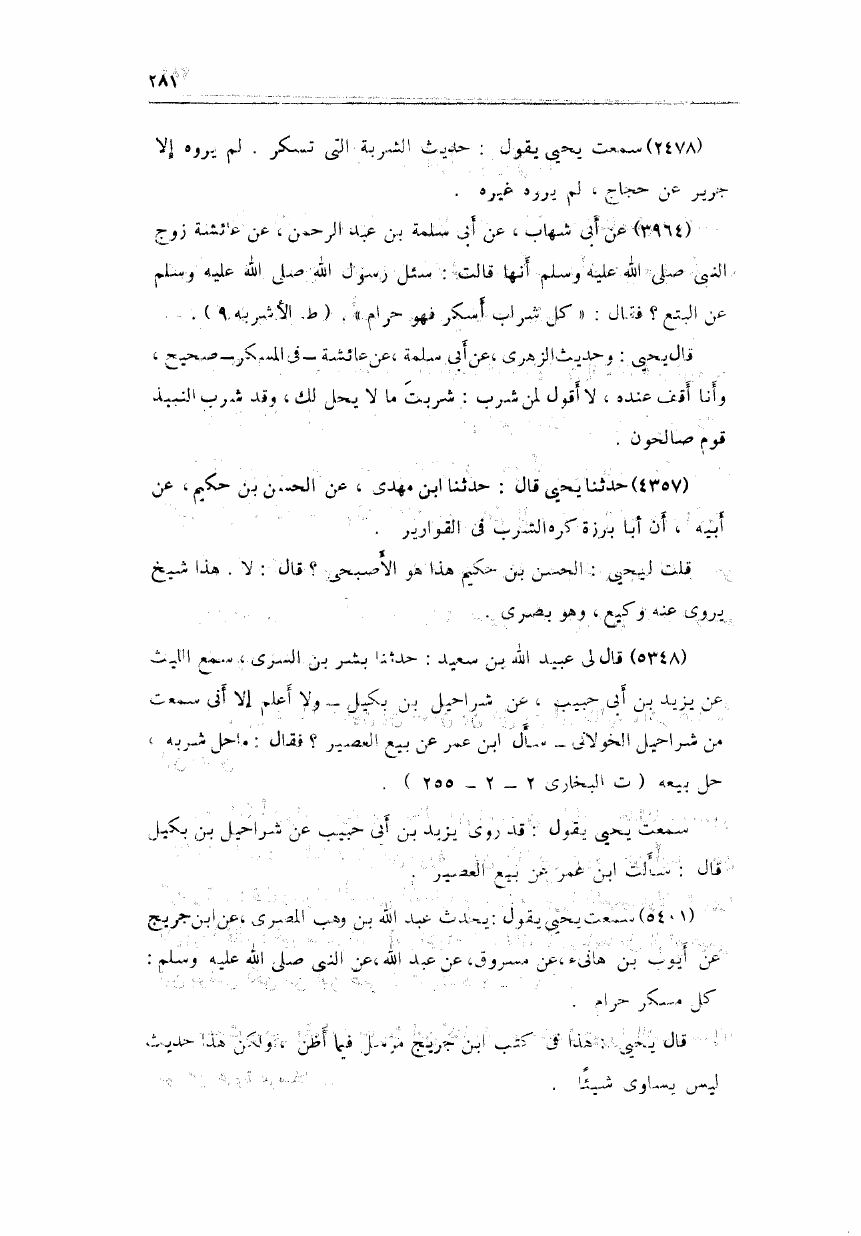 ٢٨١
(٢٤٧٨) سمعت يحيى يقول : حديث الشربة التى تسكر . لم يروه إلا
جرير عن حجاج ، لم يروه غيره .
(٣٩٦٤) عن أبى شهاب ، عن أبى سلمة بن عبد الرحمن ، عن عائشة زوج
النبى صلى الله عليه وسلم أنها قالت : سئل رسول الله صلى الله عليه وسلم
عن البتع ؟ فقال : « كل شراب أسكر فهو حرام » . ( ط . الأشربه ٩ ) .
قال يحيى : وحديث الزهرى ، عن أبى سلمة ، عن عائشة – فى المسكر – صحيح ،
وأنا أقف عنده ، لا أقول لمن شرب : شربتَ ما لا يحل لك ، وقد شرب النبيذ
قوم صالحون .
(٤٣٥٧) حدثنا يحيى قال : حدثنا ابن مهدى ، عن الحسن بن حكيم ، عن
أبيه ، أن أبا برزة كره الشرب فى القوارير .
قلت ليحيى : الحسن بن حكيم هذا هو الأصبحى ؟ قال : لا . هذا شيخ
يروى عنه وكيع ، وهو بصرى .
(٥٣٤٨) قال لى عبيد الله بن سعيد : حدثنا بشر بن السرى ، سمع الليث
عن يزيد بن أبى حبيب ، عن شراحيل بن بكيل – ولا أعلم إلا أنى سمعت
من شراحيل الخولانى – سأل ابن عمر عن بيع العصير ؟ فقال : ما حل شربه ،
حل بيعه ( ت البخارى ٢ – ٢ – ٢٥٥ ) .
سمعت يحيى يقول : قد روى يزيد بن أبى حبيب عن شراحيل بن بكيل
قال : سألت ابن عمر عن بيع العصير .
(٥٤٠١) سمعت يحيى يقول : يحدث عبد الله بن وهب المصرى ، عن ابن جريج
عن أيوب بن هانىء ، عن مسروق ، عن عبد الله ، عن النبى صلى الله عليه وسلم :
كل مسكر حرام .
قال يحيى : هذا فى كتب ابن جريج مرسل فيما أظن ، ولكن هذا حديث
ليس يساوى شيئًا .